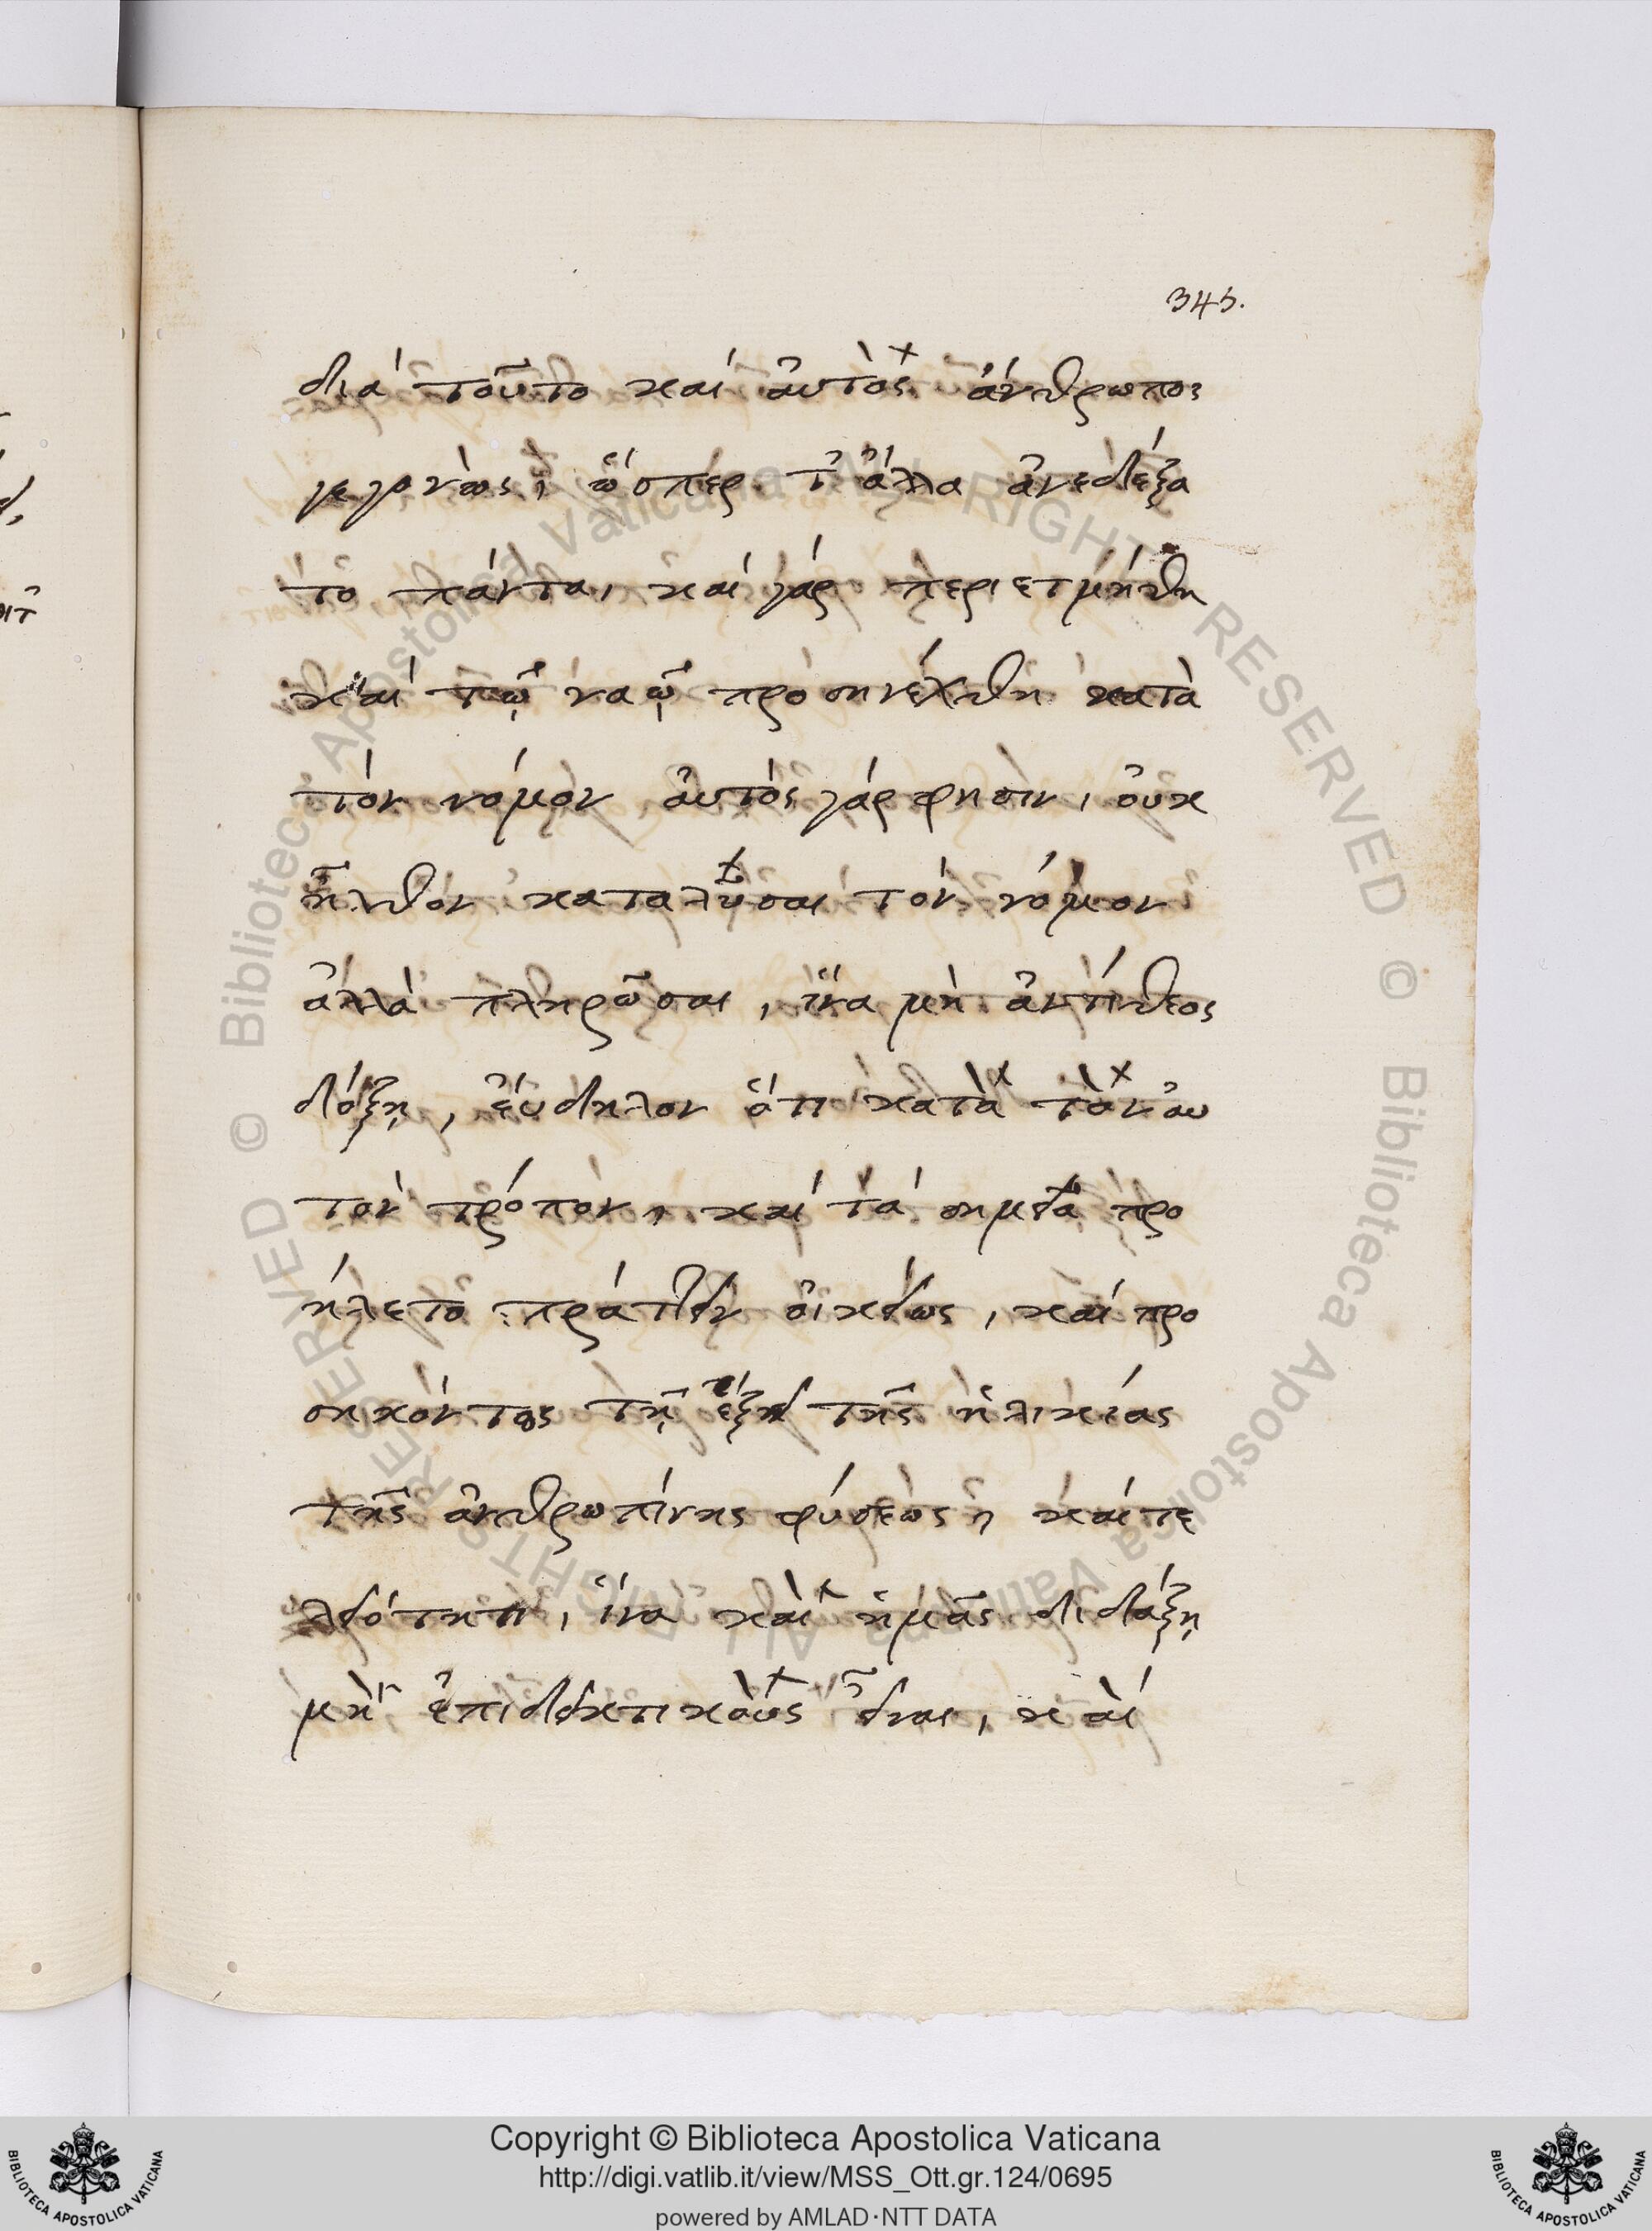 345.
διά τοῦτο καί ἀυτὸς ἄνθρωπος
γεγονὼς, ὥσπερ τ ἄλλα ἀνεδέξα
το πάντα, καί γάρ περιετμήθη
καί τῷ ναῷ προσηνέχθη κατὰ
τόν νόμον, ἀυτός γάρ φησιν, ὀυκ
ἦλθον καταλῦσαι τόν νόμον
ἀλλὰ πληρῶσαι, ἵνα μὴ ἀντίθεος
δόξῃ, ἔυδηλον ὅτι κατὰ τὸν ἀυ
τόν τρόπον, καί τά σημεῖα προ
ήλετο πράττειν ὀικείως, καί προ
σηκόντως τῇ ἕξει τῆς ἡλικίας
τῆς ἀνθρωπίνης φύσεως, καί τε
λειότητι, ἵνα καὶ ἡμᾶς διδάξῃ
μὴ ἐπιδεικτικοὺς εἶναι, καί
Copyright © Biblioteca Apostolica Vaticana
http://digi.vatlib.it/view/MSS_Ott.gr.124/0695
powered by AMLAD·NTT DATA
BIBLIOTECA APOSTOLICA VATICANA
BIBLIOTECA APOSTOLICA VATICANA
© Biblioteca Apostolica Vaticana ALL RIGHTS RESERVED
© Biblioteca Apostolica Vaticana ALL RIGHTS RESERVED